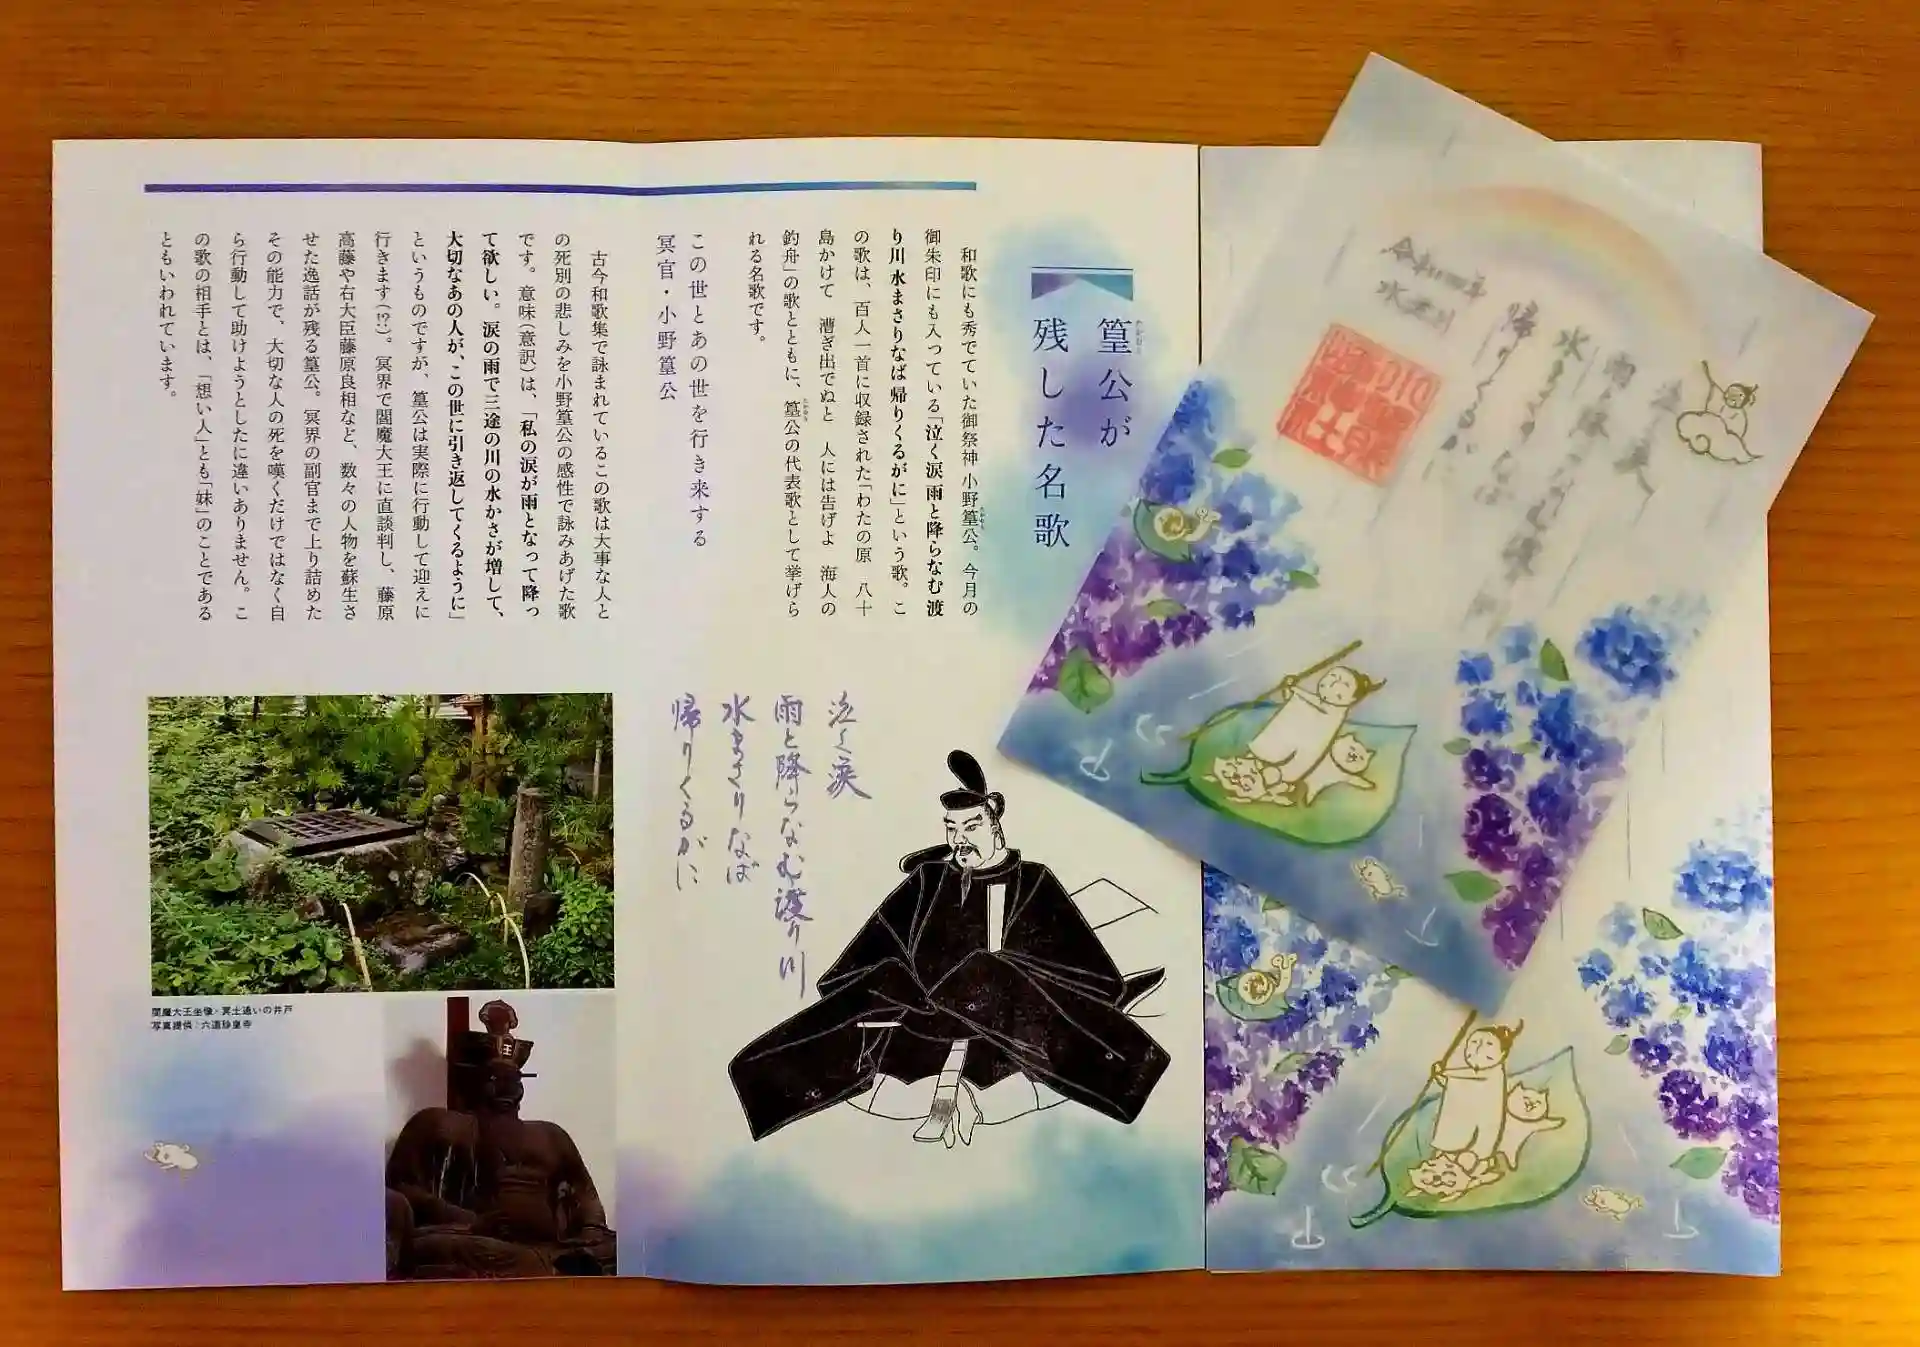 篁公が
残した名歌
和歌にも秀でていた御祭神 小野篁公。今月の
御朱印にも入っている「泣く涙 雨と降らなむ 渡
り川 水まさりなば 帰りくるがに」という歌。こ
の歌は、百人一首に収録された「わたの原 八十
島かけて 漕ぎ出でぬと 人には告げよ 海人の
釣舟」の歌とともに、篁公の代表歌として挙げら
れる名歌です。
この世とあの世を行き来する
冥官・小野篁公
古今和歌集で詠まれているこの歌は大事な人と
の死別の悲しみを小野篁公の感性で詠みあげた歌
です。意味(意訳)は、「私の涙が雨となって降っ
て欲しい。涙の雨で三途の川の水かさが増して、
大切なあの人が、この世に引き返してくるように」
というものですが、篁公は実際に行動して迎えに
行きます(!?)。冥界で閻魔大王に直談判し、藤原
高藤や右大臣藤原良相など、数々の人物を蘇生さ
せた逸話が残る篁公。冥界の副官まで上り詰めた
その能力で、大切な人の死を嘆くだけではなく自
ら行動して助けようとしたに違いありません。こ
の歌の相手とは、「想い人」とも「妹」のことである
ともいわれています。
泣く涙
雨と降らなむ渡り川
水まさりなば
帰りくるがに
閻魔大王坐像・冥土通いの井戸
写真提供：六道珍皇寺
王
泣く涙
雨と降らなむ渡り川
水まさりなば
帰りくるがに
令和四年
水無月